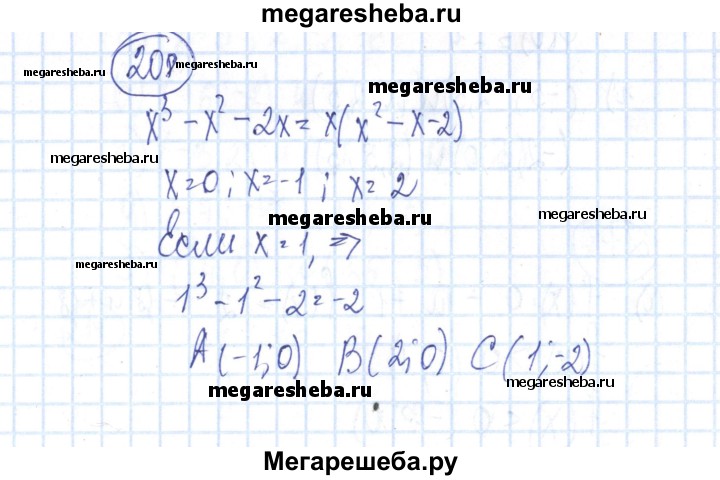 megaresheba.ru
208
megaresheba.ru
megaresheba.ru
megaresheba.ru
x³ - x² - 2x = x(x² - x - 2)
megaresheba.ru
x = 0 ; x = -1 ; x = 2
megaresheba.ru
megaresheba.ru
Если x = 1, ⇒
megaresheba.ru
1³ - 1² - 2 = -2
A(-1; 0) B(2; 0) C(1; -2)
megaresheba.ru
megaresheba.ru
Мегарешеба.ру